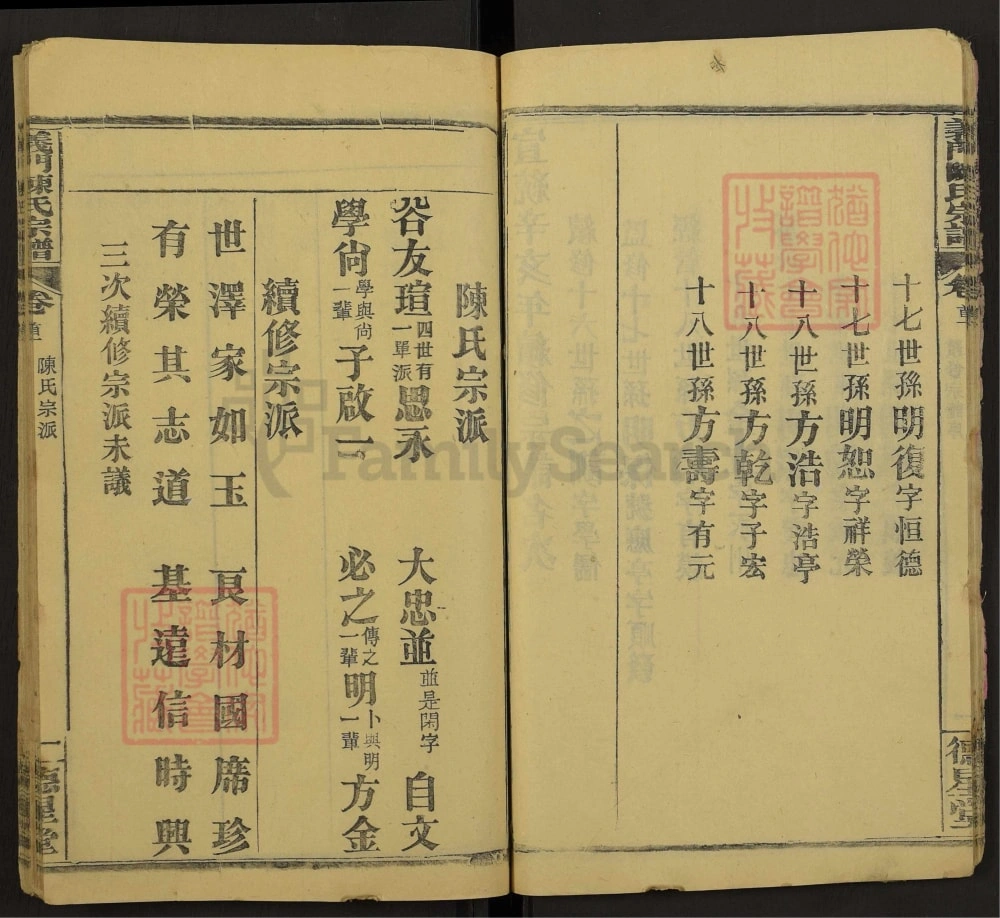 義門陳氏宗譜
卷首
德星堂
十七世孫明復字恒德
十七世孫明恕字祥榮
十八世孫方浩字浩亭
十八世孫方乾字子宏
十八世孫方壽字有元
陳氏宗派
谷友瑄四世有一單派思永 大忠並並是閑字 自文
學尙學與尙一輩子啟一 必之傳之一輩明卜與明一輩方金
續修宗派
世澤家如玉 良材國席珍
有榮其志道 基遠信時興
三次續修宗派未議
義門陳氏宗譜
卷首
陳氏宗派
德星堂
FamilySearch